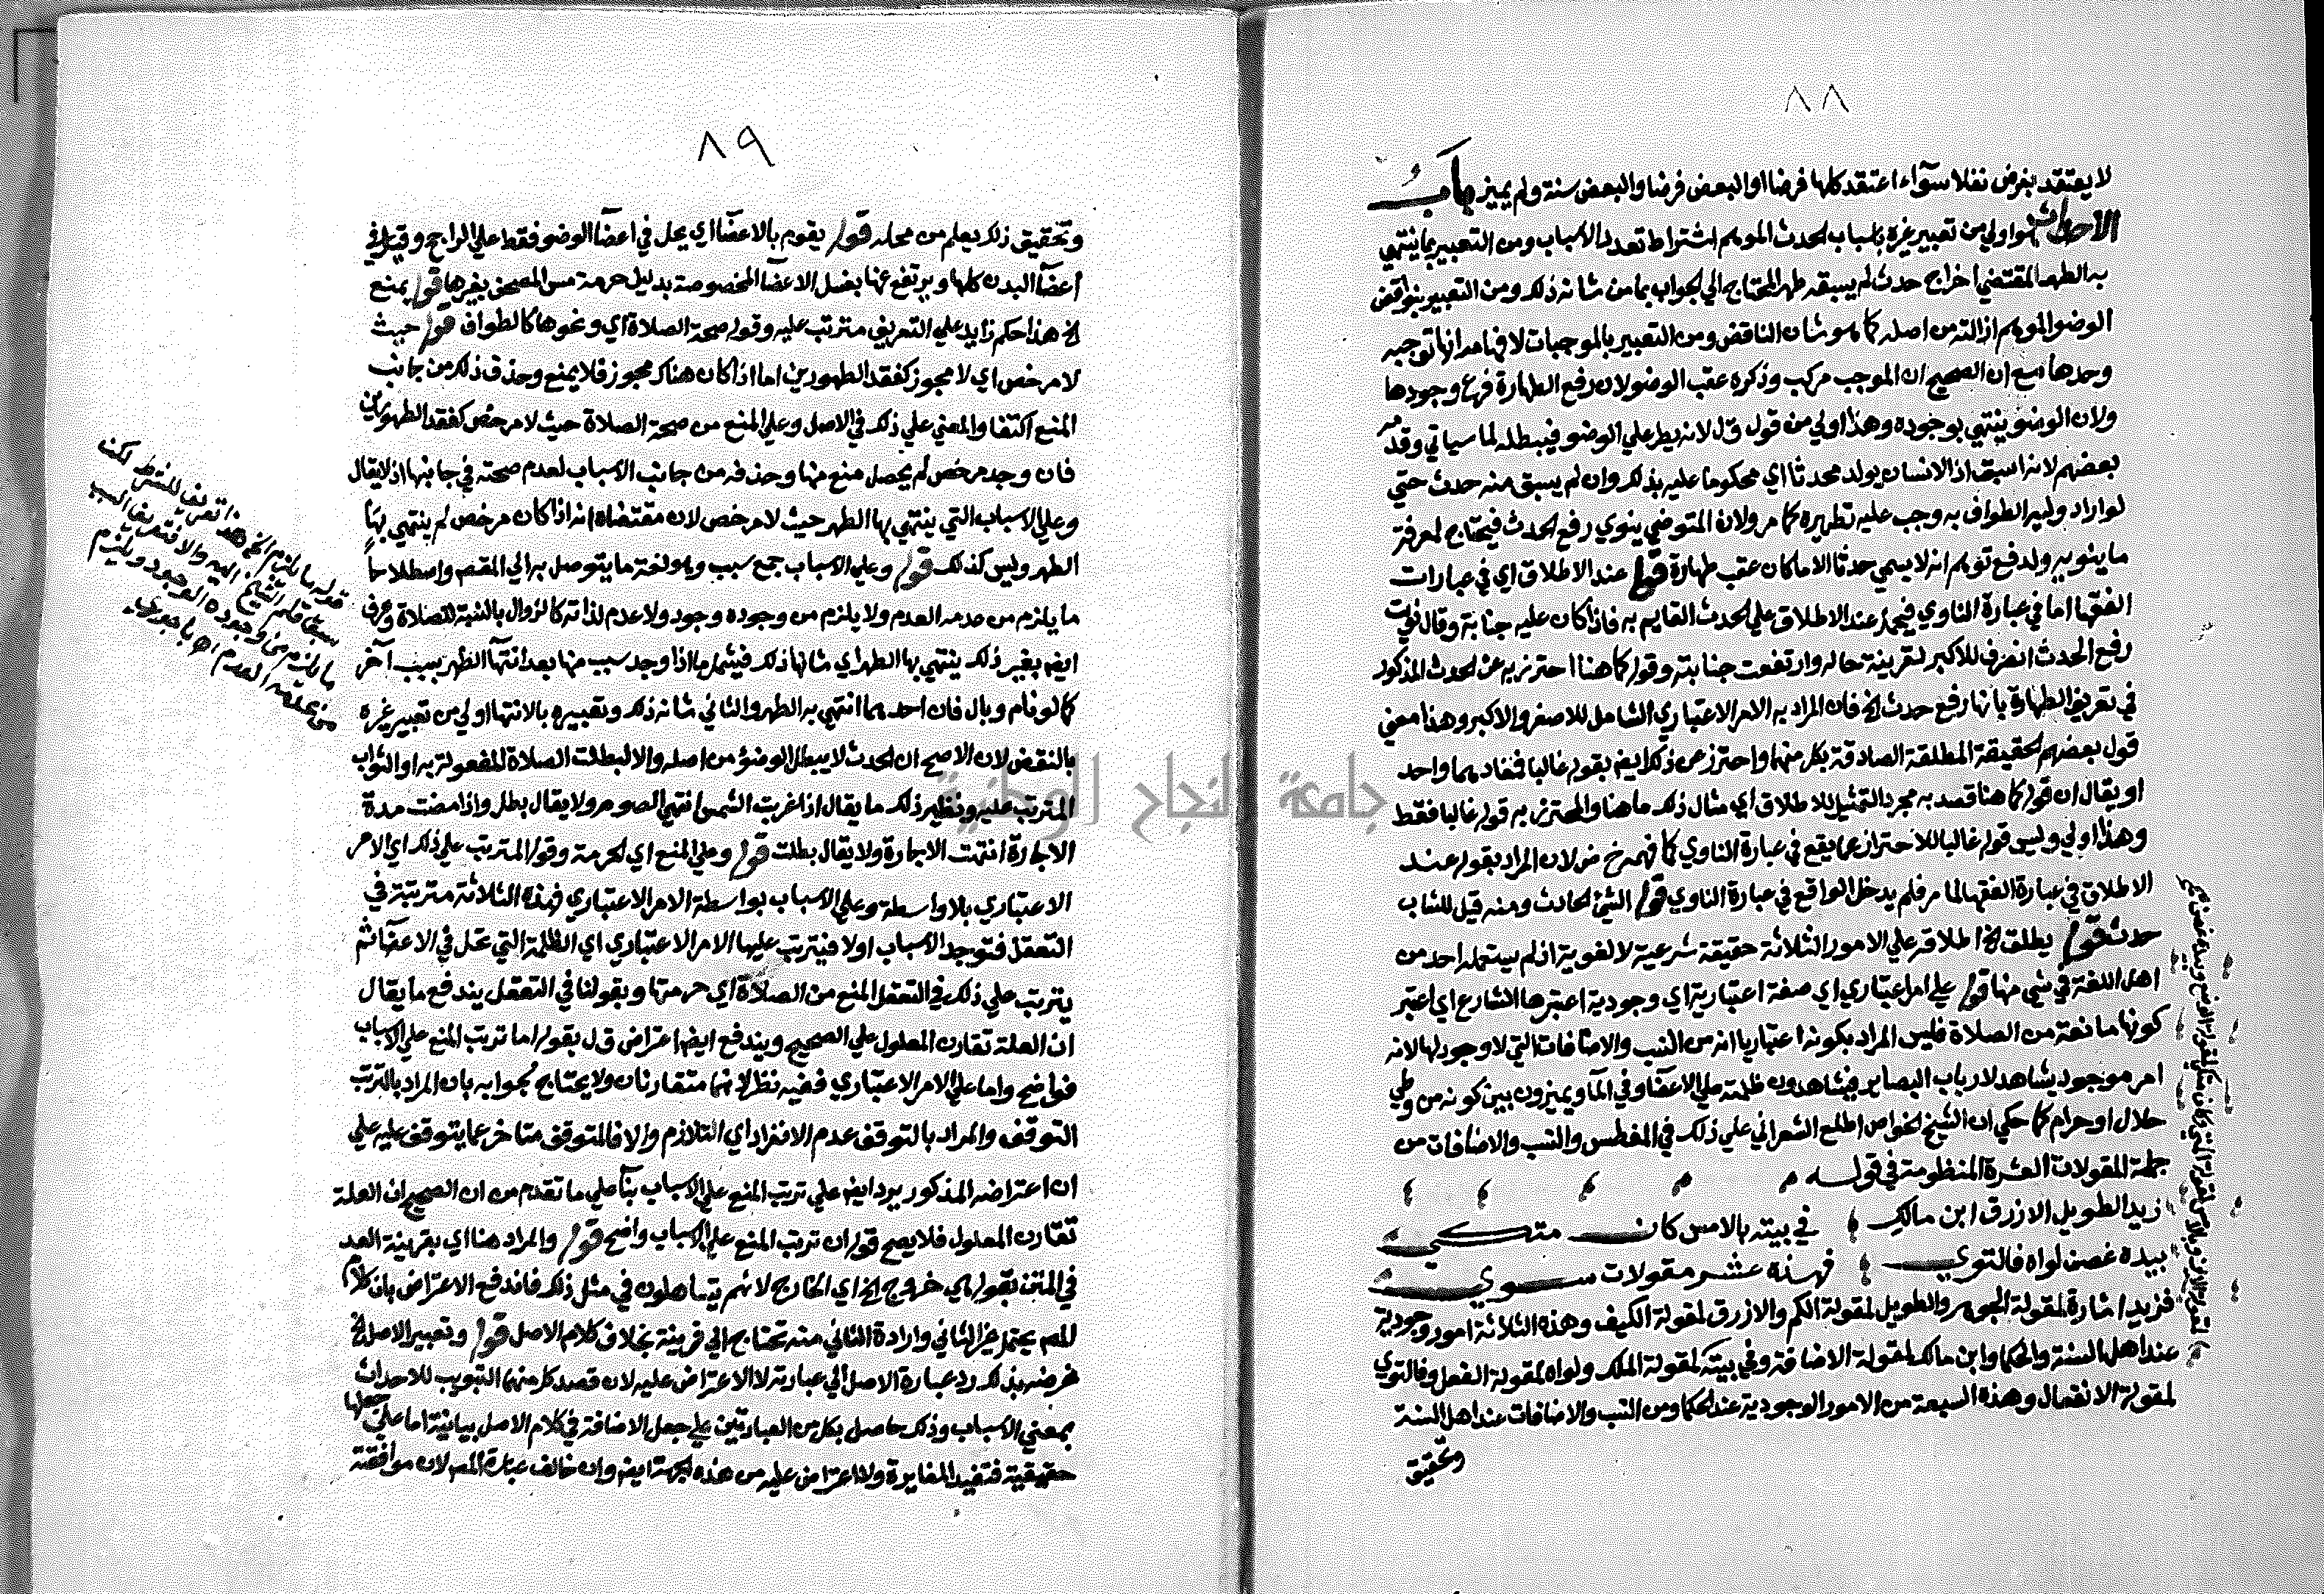 ٨٨
لا يعتقد بفرض نفلا سوآء اعتقد كلها فرضا او البعض فرضا والبعض سنة ولم يميز باب
الاحداث هو اولي من تعبير غيره باسباب الحدث الموهم اشتراط تعدد الاسباب ومن التعبير بما ينتهي
به الطهر المقتضي اخراج حدث لم يسبقه طهر المحتاج الي الجواب بما من شانه ذلك ومن التعبير بنواقض
الوضو الموهم ازالته من اصله كما هو شان الناقض ومن التعبير بالموجبات لافهامه انها توجبه
وحدها مع ان الصحيح ان الموجب مركب وذكره عقب الوضو لان رفع الطهارة فرع وجودها
ولان الوضو ينتهي بوجوده وهذا اولي من قول ق ل لانه يطر علي الوضو فيبطله لما سياتي وقدمه
بعضهم لانه اسبق اذ الانسان يولد محدثا اي محكوما عليه بذلك وان لم يسبق منه حدث حتي
لو اراد وليه الطواف به وجب عليه تطهيره كما مر ولان المتوضي ينوي رفع الحدث فيحتاج لمعرفة
ما ينويه ولدفع توهم انه لا يسمي حدثا الا ما كان عقب طهارة قوله عند الاطلاق اي في عبارات
الفقها اما في عبارة الناوي فيحمل عند الاطلاق علي الحدث القايم به فاذا كان عليه جنابة وقال نويت
رفع الحدث انصرف للاكبر لقرينة حاله وارتفعت جنابته وقوله كما هنا احترز به عن الحدث المذكور
في تعريف الطهارة بانها رفع حدث الخ فان المراد به الامر الاعتباري الشامل للاصغر والاكبر وهذا معني
قول بعضهم الحقيقة المطلقة الصادقة بكل منهما واحترز عن ذلك ايضا بقوله غالبا فمفادهما واحد
او يقال ان قوله كما هنا قصد به مجرد التمثيل للاطلاق اي مثال ذلك ما هنا والمحترز به قوله غالبا فقط
وهذا اولي وليس قوله غالبا للاحتراز عما يقع في عبارة الناوي كما فهمه خ ض لان المراد بقوله عند
الاطلاق في عبارة الفقها لما مر فلم يدخل الواقع في عبارة الناوي قوله الشئ الحادث ومنه قيل للشاب
حدث قوله يطلق الخ اطلاقه علي الامور الثلاثة حقيقة شرعية لا لغوية اذ لم يستعمله احد من
اهل اللغة في شي منها قوله علي امر اعتباري اي صفة اعتبارية اي وجودية اعتبرها الشارع اي اعتبر
كونها مانعة من الصلاة فليس المراد بكونه اعتباريا انه من النسب والاضافات التي لا وجود لها لانه
امر موجود يشاهد لارباب البصاير فيشاهدون ظلمته علي الاعضا وفي المآ ويميزون بين كونه من وطي
حلال او حرام كما حكي ان الشيخ الخواص اطلع الشعراني علي ذلك في المغطس والنسب والاضافات من
جملة المقولات العشرة المنظومة في قوله
زيد الطويل الازرق ابن مالك في بيته بالامس كان متكي
بيده غصن لواه فالتوي فهذه عشر مقولات سوي
فزيد اشارة لمقولة الجوهر والطويل لمقولة الكم والازرق لمقولة الكيف وهذه الثلاثة امور وجودية
عند اهل السنة والحكما وابن مالك لمقولة الاضافة وفي بيته لمقولة الملك ولواه لمقولة الفعل وفالتوي
لمقولة الانفعال وهذه السبعة من الامور الوجودية عند الحكما ومن النسب والاضافات عند اهل السنة
وتحقيق
٨٩
وتحقيق ذلك يعلم من محله قوله يقوم بالاعضآ اي يحل في اعضآ الوضو فقط علي الراجح وقيل في
اعضآ البدن كلها ويرتفع عنها بغسل الاعضآ المخصوصة بدليل حرمة مس المصحف بغيرها قوله يمنع
الخ هذا حكم زايد علي التعريف مترتب عليه وقوله صحة الصلاة اي ونحوها كالطواف قوله حيث
لا مرخص اي لا مجوز كفقد الطهورين اما اذا كان هناك مجوز فلا يمنع وحذف ذلك من جانب
المنع اكتفا والمعني علي ذلك في الاصل وعلي المنع من صحة الصلاة حيث لا مرخص كفقد الطهورين
فان وجد مرخص لم يحصل منع منها وحذفه من جانب الاسباب لعدم صحته في جانبها اذ لا يقال
وعلي الاسباب التي ينتهي بها الطهر حيث لا مرخص لان مقتضاه انه اذا كان مرخص لم ينتهي بها
الطهر وليس كذلك قوله وعلي الاسباب جمع سبب وهو لغة ما يتوصل به الي المقصود واصطلاحاً
ما يلزم من عدمه العدم ولا يلزم من وجوده وجود ولا عدم لذاته كالزوال بالنسبة للصلاة وعرف
ايضا بغير ذلك ينتهي بها الطهر اي شانها ذلك فيشمل ما اذا وجد سبب منها بعد انتهآ الطهر بسبب آخر
كما لو نام وبال فان احدهما انتهي به الطهر والثاني شانه ذلك وتعبيره بالانتها اولي من تعبير غيره
بالنقض لان الاصح ان الحدث لا يبطل الوضؤ من اصله والا لبطلت الصلاة المفعولة به او الثواب
المترتب عليه ونظير ذلك ما يقال اذا غربت الشمس انتهي الصوم ولا يقال بطل واذا مضت مدة
الاجارة انتهت الاجارة ولا يقال بطلت قوله وعلي المنع اي الحرمة وقوله المترتب علي ذلك اي الامر
الاعتباري بلا واسطة وعلي الاسباب بواسطة الامر الاعتباري فهذه الثلاثة مترتبة في
التعقل فتوجد الاسباب اولا فيترتب عليها الامر الاعتباري اي الظلمة التي تحل في الاعضآ ثم
يترتب علي ذلك في التعقل المنع من الصلاة اي حرمتها وبقولنا في التعقل يندفع ما يقال
ان العلة تقارن المعلول علي الصحيح ويندفع ايضا اعتراض ق ل بقوله اما ترتب المنع علي الاسباب
فواضح واما علي الامر الاعتباري ففيه نظر لانهما متقارنان ولا يحتاج لجوابه بان المراد بالترتب
التوقف والمراد بالتوقف عدم الانفراد اي التلازم والا فالمتوقف متاخر عما يتوقف عليه علي
ان اعتراضه المذكور يرد ايضا علي ترتب المنع علي الاسباب بنآ علي ما تقدم من ان الصحيح ان العلة
تقارن المعلول فلا يصح قوله ان ترتب المنع علي الاسباب واضح قوله والمراد هنا اي بقرينة العد
في المتن بقوله هي خروج الخ اي الخارج لانهم يتساهلون في مثل ذلك فاندفع الاعتراض بان كلام
المص يحتمل غير الثاني وارادة الثاني منه تحتاج الي قرينة بخلاف كلام الاصل قوله وتعبير الاصل الخ
غرضه بذلك رد عبارة الاصل الي عبارته لا الاعتراض عليه لان قصد كل منهما التبويب للاحداث
بمعني الاسباب وذلك حاصل بكل من العبارتين علي جعل الاضافة في كلام الاصل بيانية اما علي جعلها
حقيقية فتفيد المغايرة ولا اعتراض عليه من هذه الجهة ايضا وان خالف عبارة المص لان موافقته
قوله ما يلزم الخ هذا تعريف للشرط لكنه
سبق قلم الشيخ اليه والا فتعريف السبب
ما يلزم من وجوده الوجود ويلزم
من عدمه العدم اه باجوري